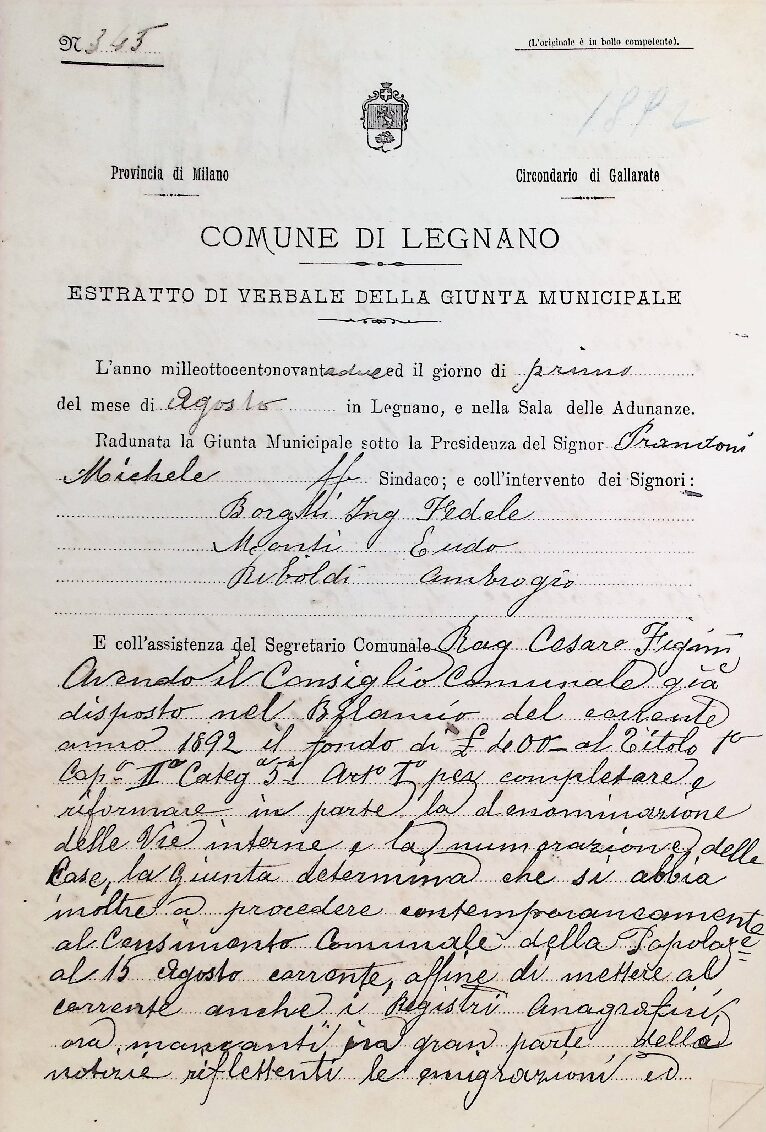 N. 345
(L'originale è in bollo competente).
1892
Provincia di Milano
Circondario di Gallarate
COMUNE DI LEGNANO
ESTRATTO DI VERBALE DELLA GIUNTA MUNICIPALE
L'anno milleottocentonovantadue ed il giorno di primo
del mese di Agosto in Legnano, e nella Sala delle Adunanze.
Radunata la Giunta Municipale sotto la Presidenza del Signor Prandoni
Michele ff Sindaco; e coll'intervento dei Signori:
Borghi Ing Fedele
Monti Eudo
Riboldi Ambrogio
E coll'assistenza del Segretario Comunale Rag Cesare Figini
Avendo il Consiglio Comunale già
disposto nel Bilancio del corrente
anno 1892 il fondo di £ 400 - al Titolo 1º
Capº IIº Categª 5ª Artº 1º pez completare e
riformare in parte la denominazione
delle Vie interne e la numerazione delle
Case, la Giunta determina che si abbia
inoltre a procedere contemporaneamente
al Censimento Comunale della Popolazº
al 15 Agosto corrente, affine di mettere al
corrente anche i Registri Anagrafici,
ora mancanti in gran parte delle
notizie riflettenti le emigrazioni ed